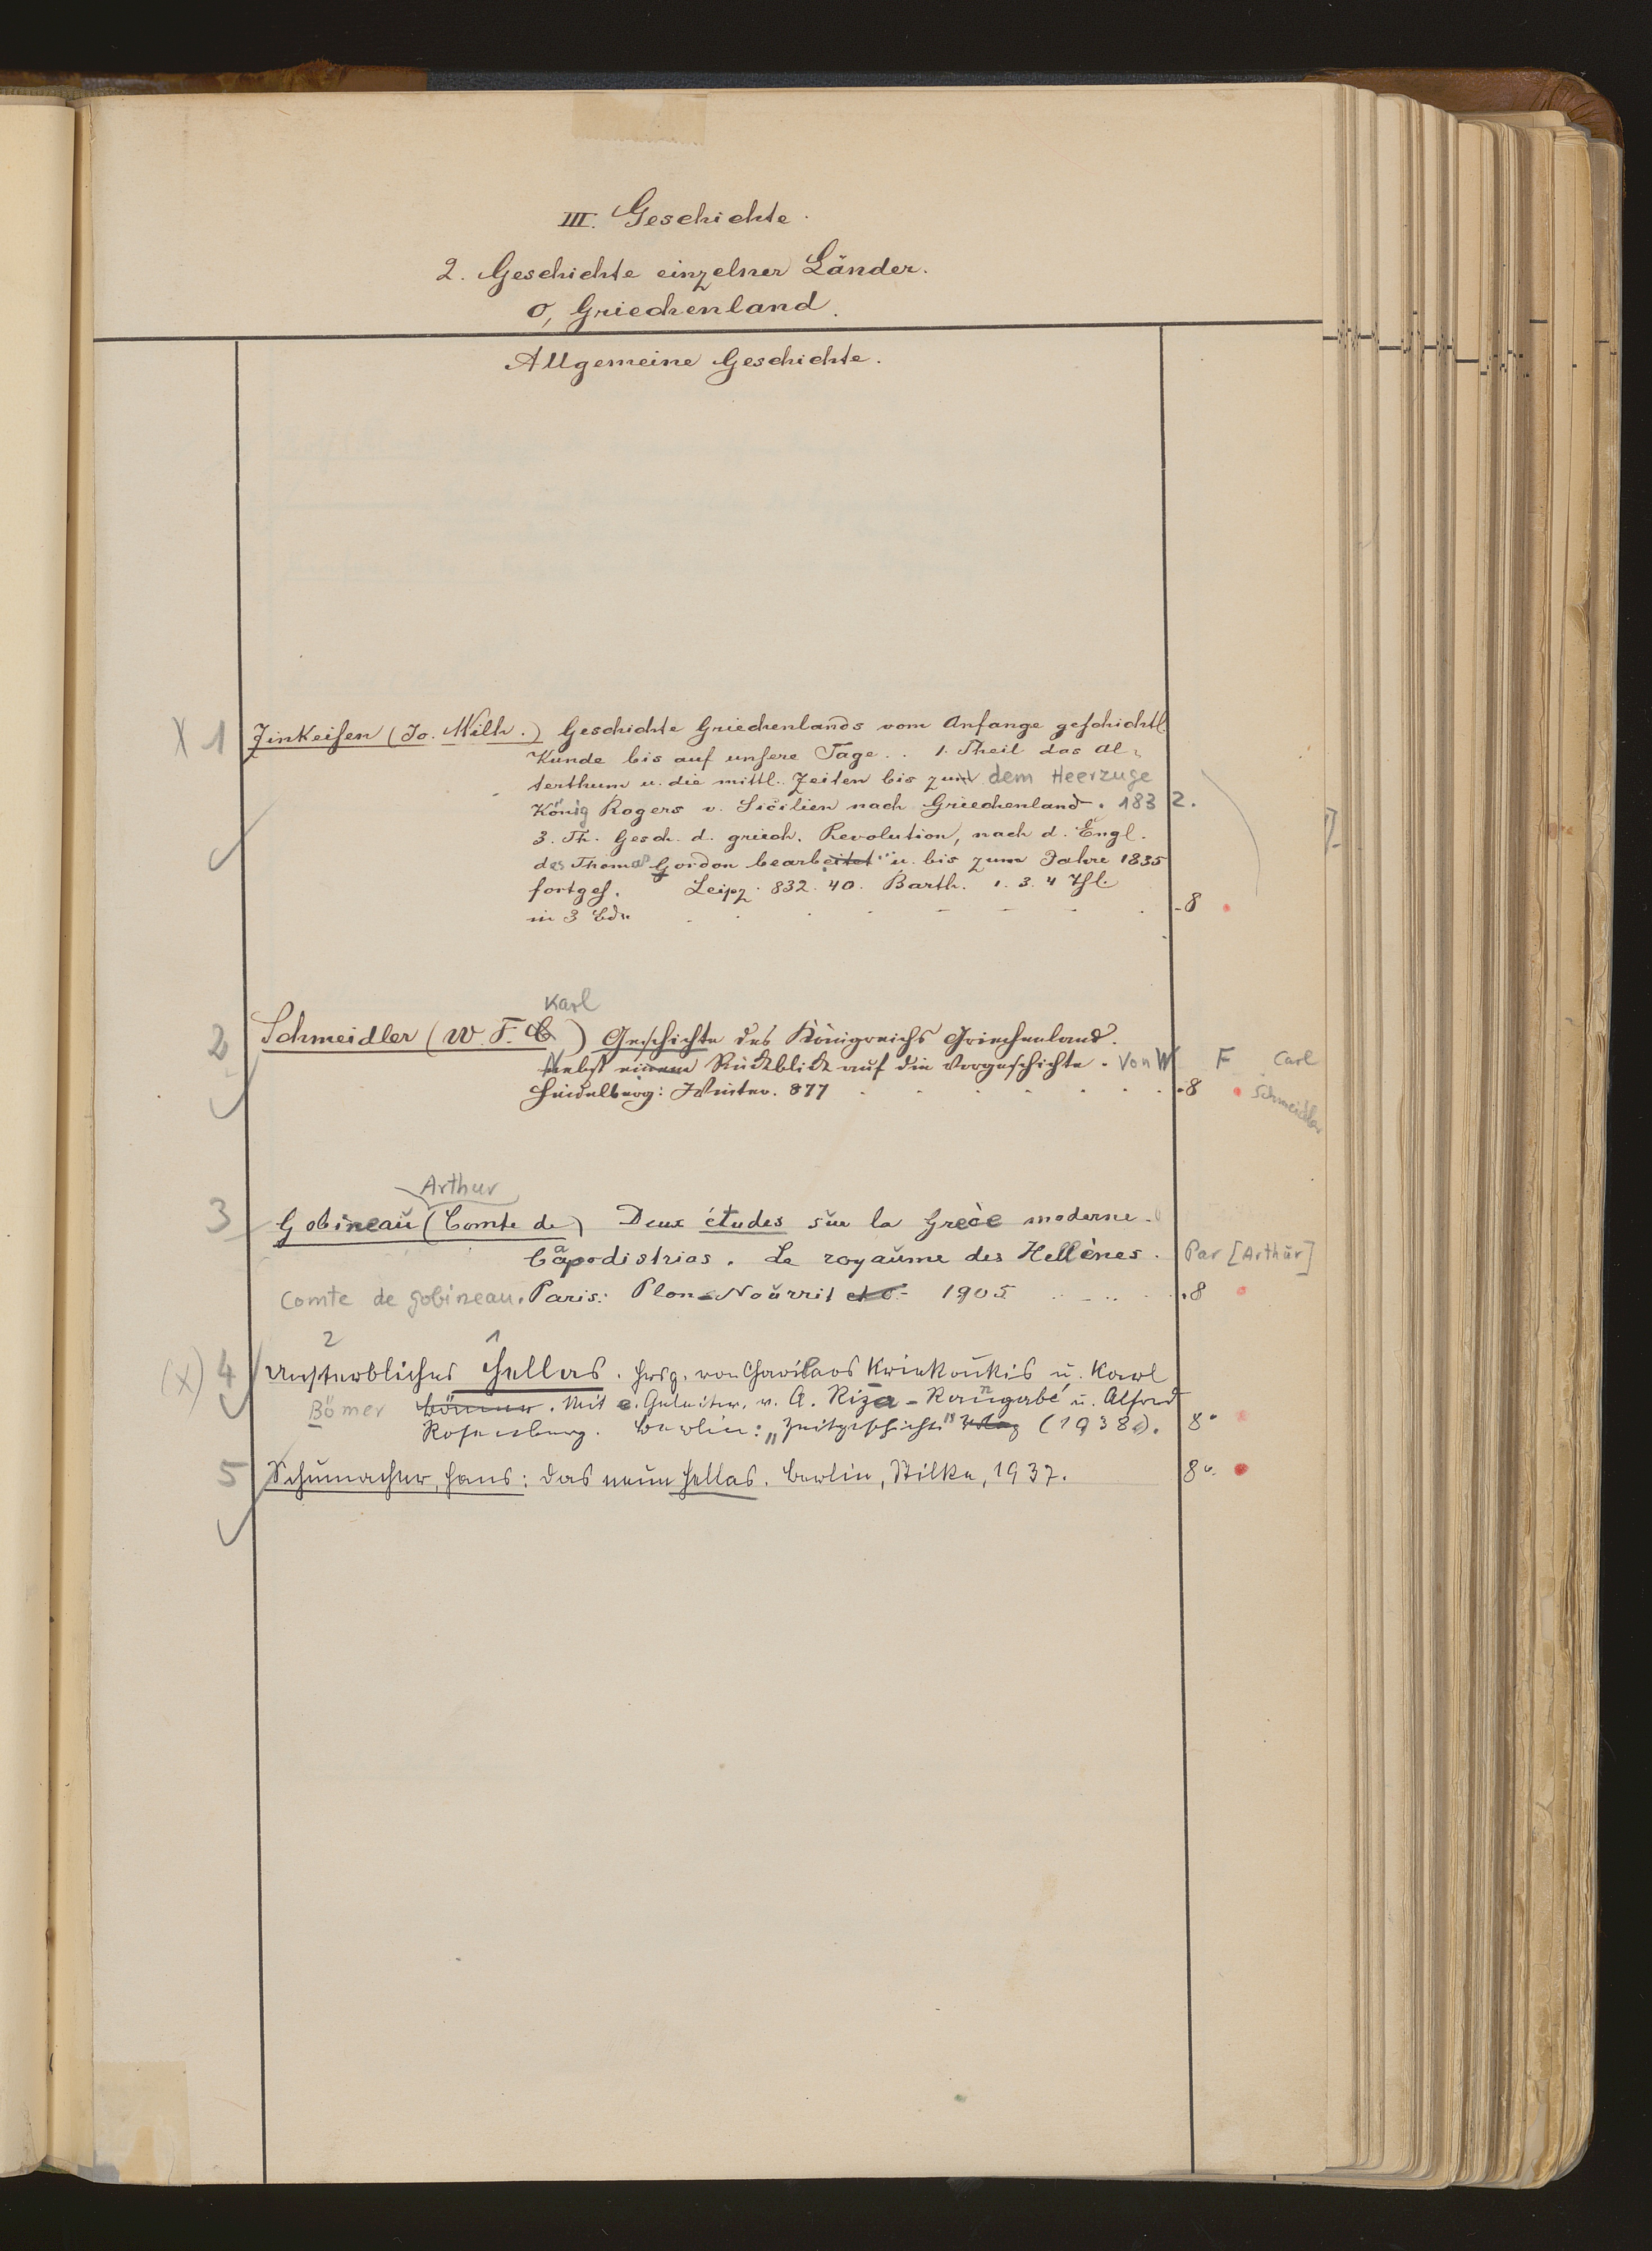 III. Geschichte.
2. Geschichte einzelner Länder.
o, Griechenland.
Allgemeine Geschichte.
X 1 Zinkeisen (Jo. Wilh.) Geschichte Griechenlands vom Anfange geschichtl.
Kunde bis auf unsere Tage . . 1. Theil das Al-
terthum u. die mittl. Zeiten bis zu dem Heerzuge
König Rogers v. Sicilien nach Griechenland. 1832.
3. Th. Gesch. d. griech. Revolution, nach d. Engl.
des Thomas Gordon bearbeitet u. bis zum Jahre 1835
fortges. Leipz. 832. 40. Barth. 1. 3. 4 Thl.
in 3 Bdn - 8
Karl
2 Schmeidler (W. F. C.) Geschichte des Königreichs Griechenland.
Nebst einem Rückblick auf die Vorgeschichte. Von W F Carl
Heidelberg: Winter. 877 8 Schmeidler
Arthur
3 Gobineau (Comte de) Deux études sur la Grèce moderne.
Capodistrias. Le royaume des Hellènes. Par [Arthur]
Comte de Gobineau. Paris: Plon-Nourrit et C. 1905 8
2 1
(X) 4 Unsterbliches Hellas. Hrsg. von Charilaos Kriekoukis u. Karl
Bömer Bömer. Mit e. Geleitw. v. A. Riza-Rangabé u. Alfred
Rosenberg. Berlin: „Zeitgeschichte" Verlag (1938). 8°
5 Schumacher, Hans: Das neue Hellas. Berlin, Stilke, 1937. 8°.